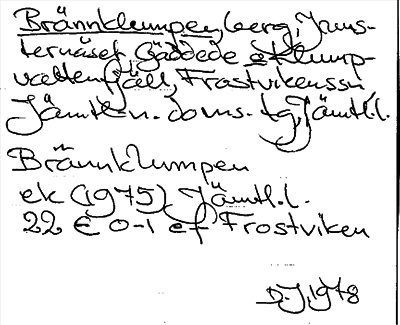 Brännklumpen, berg, Juns-
ternäset Gäddede o Klump-
vattenfjäll, Frostvikens sn
Jämtl. n. doms. tg, Jämtl. l.
Brännklumpen
ek (1975) Jämtl. l.
22 E 0-1 ef Frostviken
D.J. 1978